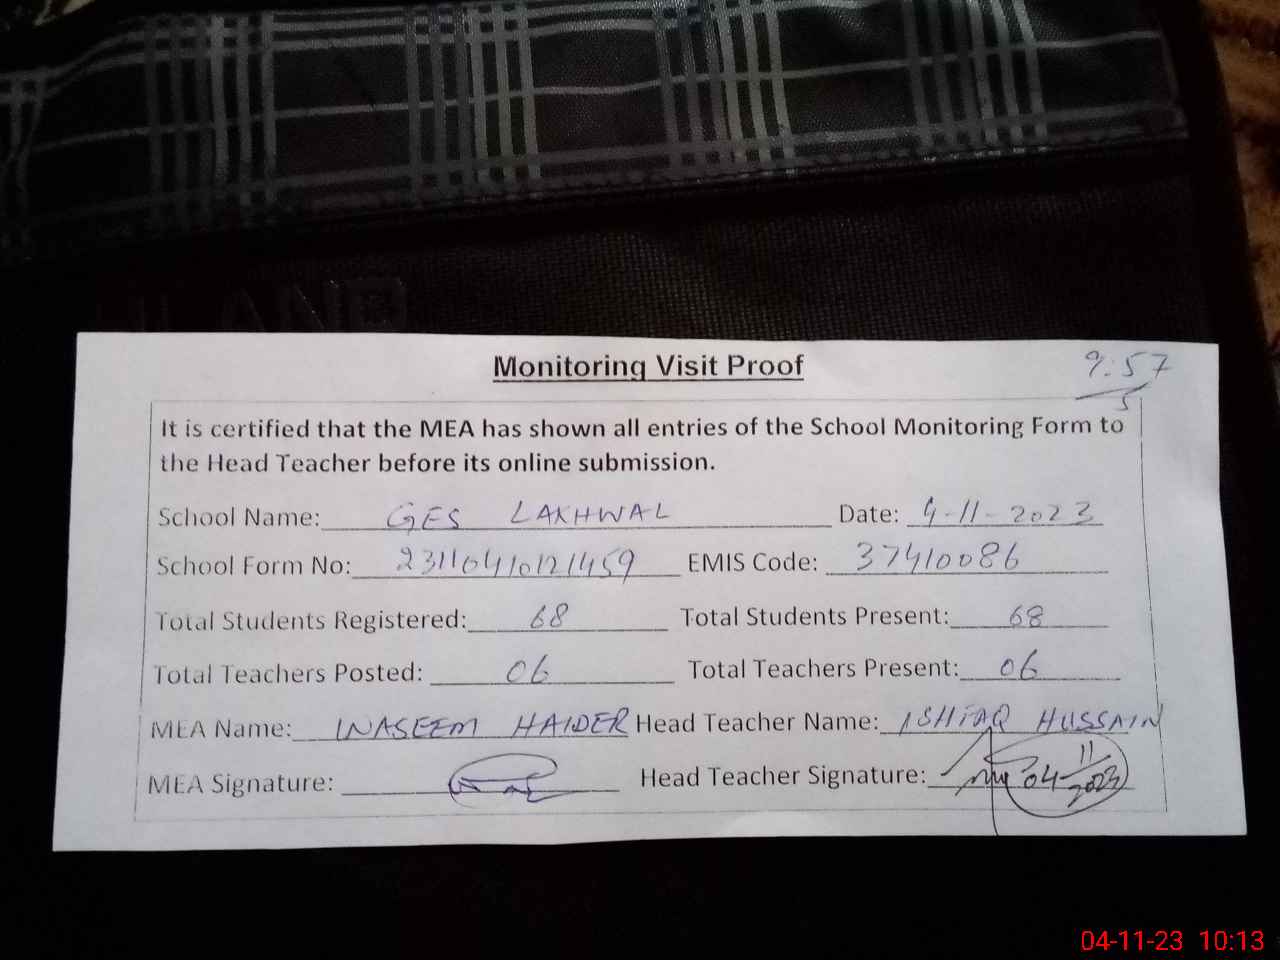 Monitoring Visit Proof
9:57
5
It is certified that the MEA has shown all entries of the School Monitoring Form to
the Head Teacher before its online submission.
School Name: GES LAKHWAL Date: 4-11-2023
School Form No: 23110410121459 EMIS Code: 37410086
Total Students Registered: 68 Total Students Present: 68
Total Teachers Posted: 06 Total Teachers Present: 06
MEA Name: WASEEM HAIDER Head Teacher Name: ISHFAQ HUSSAIN
MEA Signature: Head Teacher Signature: 04-11-2023
04-11-23 10:13